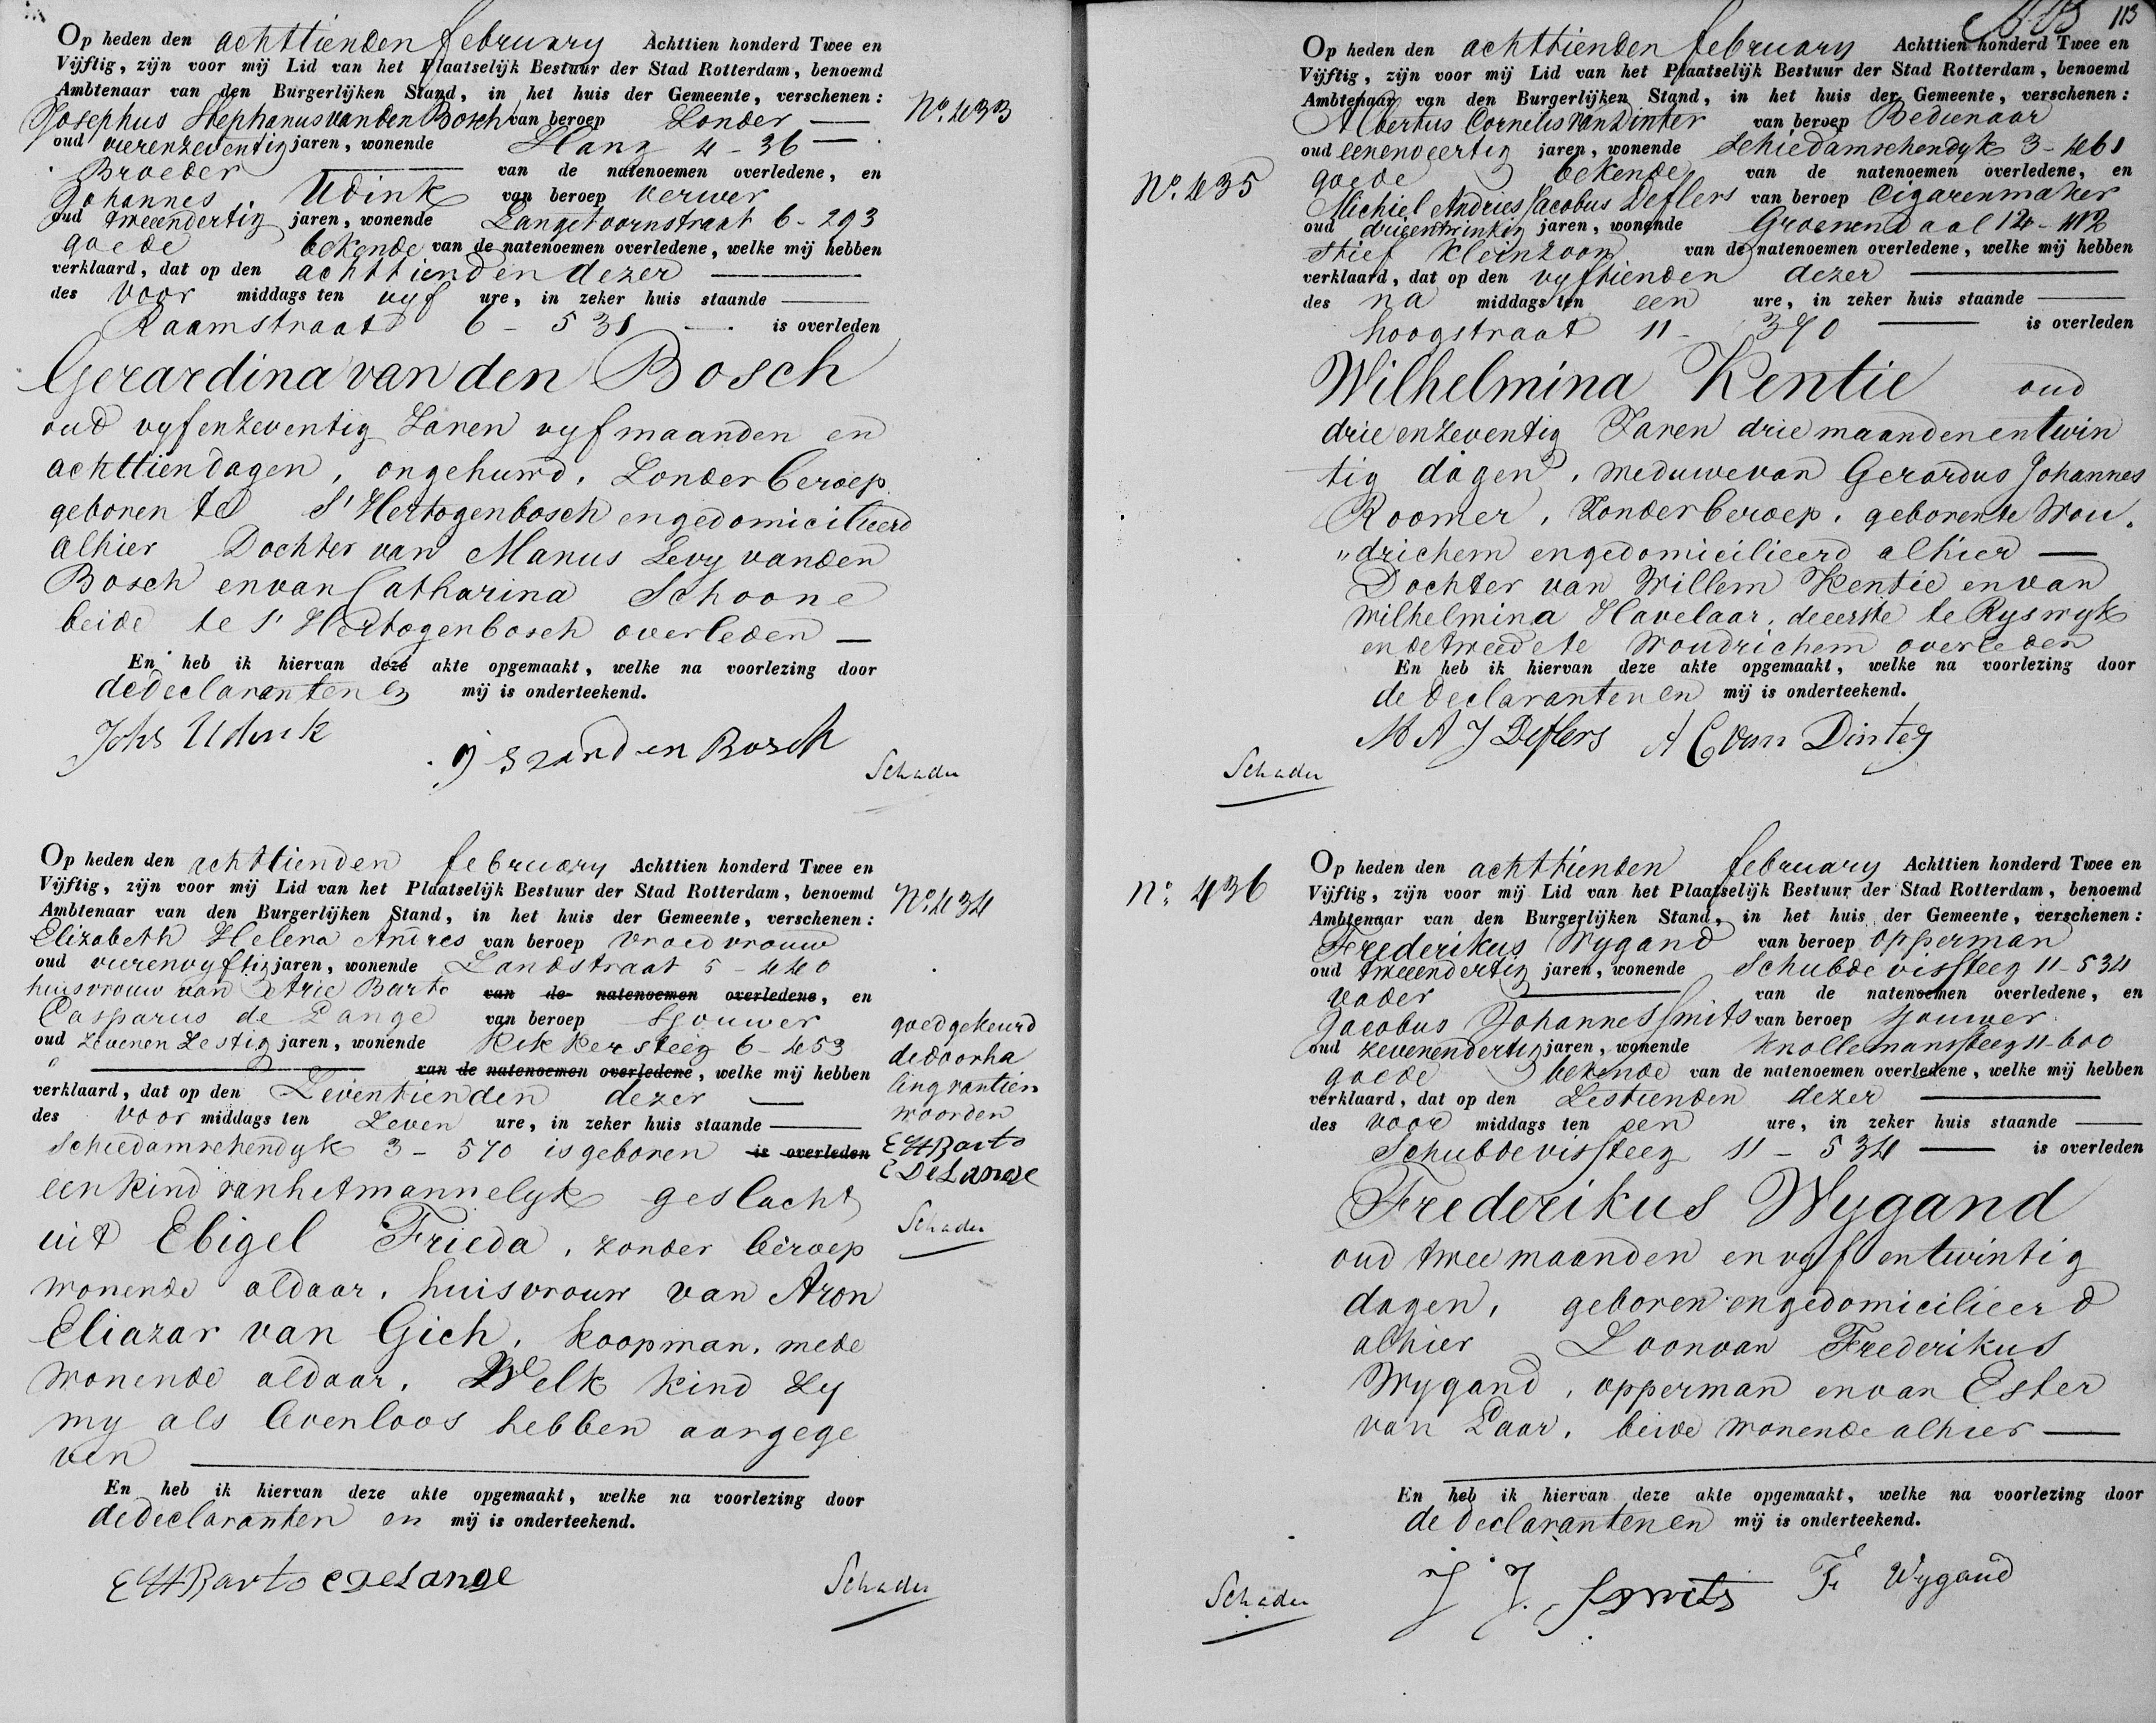 Op heden den achttienden february Achttien honderd Twee en
Vijftig, zijn voor mij Lid van het Plaatselijk Bestuur der Stad Rotterdam, benoemd
Ambtenaar van den Burgerlijken Stand, in het huis der Gemeente, verschenen:
Josephus Stephanus van den Bosch van beroep Zonder
oud vierenzeventig jaren, wonende Hang 4-36
Broeder van de natenoemen overledene, en
Johannes Udink van beroep verwer
oud tweeendertig jaren, wonende Langetoornstraat 6-293
goede bekende van de natenoemen overledene, welke mij hebben
verklaard, dat op den achttienden dezer
des voor middags ten vyf ure, in zeker huis staande
Raamstraat 6-531 is overleden
Gerardina van den Bosch
oud vyfenzeventig Jaren vyf maanden en
achttien dagen, ongehuwd, Zonder beroep
geboren te S' Hertogenbosch en gedomicilieerd
alhier Dochter van Manus Levy van den
Bosch en van Catharina Schoone
beide te s' Hertogenbosch overleden
En heb ik hiervan deze akte opgemaakt, welke na voorlezing door
de declaranten en mij is onderteekend.
Johs Udink
J S van den Bosch
Schader
No. 433
Op heden den achttienden february Achttien honderd Twee en
Vijftig, zijn voor mij Lid van het Plaatselijk Bestuur der Stad Rotterdam, benoemd
Ambtenaar van den Burgerlijken Stand, in het huis der Gemeente, verschenen:
Elizabeth Helena Andres van beroep vroedvrouw
oud vierenvyftig jaren, wonende Zandstraat 5-440
huisvrouw van Arie Barto van de natenoemen overledene, en
Casparus de Lange van beroep Sjouwer
oud zevenenzestig jaren, wonende Kikkersteeg 6-453
van de natenoemen overledene, welke mij hebben
verklaard, dat op den Zeventienden dezer
des voor middags ten Zeven ure, in zeker huis staande
Schiedamschendyk 3-570 is geboren is overleden
een kind van het mannelyk geslacht
uit Ebigel Frieda, zonder beroep
wonende aldaar, huisvrouw van Aron
Eliazar van Gich, koopman, mede
wonende aldaar. Welk kind zy
my als levenloos hebben aangege
ven
En heb ik hiervan deze akte opgemaakt, welke na voorlezing door
de declaranten en mij is onderteekend.
E H Barto C DeLange
Schader
No. 434
goedgekeurd
de doorha
ling van tien
woorden
E H Barto
C DeLange
Schader
113
Op heden den achttienden february Achttien honderd Twee en
Vijftig, zijn voor mij Lid van het Plaatselijk Bestuur der Stad Rotterdam, benoemd
Ambtenaar van den Burgerlijken Stand, in het huis der Gemeente, verschenen:
Albertus Cornelis van Dinter van beroep Bedienaar
oud eenenveertig jaren, wonende Schiedamschendyk 3-461
goede bekende van de natenoemen overledene, en
Michiel Andries Jacobus Deflers van beroep Cigarenmaker
oud drieentwintig jaren, wonende Groenendaal 12-112
Stief Kleinzoon van de natenoemen overledene, welke mij hebben
verklaard, dat op den vyftienden dezer
des na middags ten een ure, in zeker huis staande
hoogstraat 11-370 is overleden
Wilhelmina Kentie oud
drieenzeventig Jaren drie maanden en twin
tig dagen, weduwe van Gerardus Johannes
Roomer, Zonder beroep, geboren te Wou
"drichem en gedomicilieerd alhier
Dochter van Willem Kentie en van
Wilhelmina Havelaar, de eerste te Ryswyk
en de tweede te Woudrichem overleden
En heb ik hiervan deze akte opgemaakt, welke na voorlezing door
de declaranten en mij is onderteekend.
M A J Deflers A C van Dinter
Schader
No. 435
Op heden den achttienden february Achttien honderd Twee en
Vijftig, zijn voor mij Lid van het Plaatselijk Bestuur der Stad Rotterdam, benoemd
Ambtenaar van den Burgerlijken Stand, in het huis der Gemeente, verschenen:
Frederikus Wygand van beroep opperman
oud tweeendertig jaren, wonende Schubdevissteeg 11-534
vader van de natenoemen overledene, en
Jacobus Johannes Smits van beroep sjouwer
oud zevenendertig jaren, wonende Knollemanssteeg 11-600
goede bekende van de natenoemen overledene, welke mij hebben
verklaard, dat op den Zestienden dezer
des voor middags ten een ure, in zeker huis staande
Schubdevissteeg 11-534 is overleden
Frederikus Wygand
oud twee maanden en vyf en twintig
dagen, geboren en gedomicilieerd
alhier Zoon van Frederikus
Wygand, opperman en van Ester
van Laar, beide wonende alhier
En heb ik hiervan deze akte opgemaakt, welke na voorlezing door
de declaranten en mij is onderteekend.
J J Smits F Wygand
Schader
No. 436